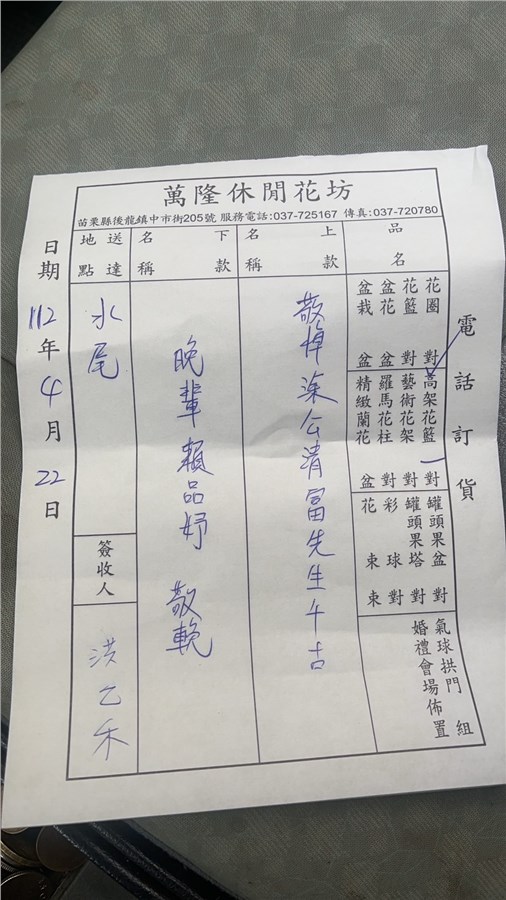 萬隆休閒花坊
苗栗縣後龍鎮中市街205號 服務電話:037-725167 傳真:037-720780
品名
花圈 對
花籃 對
盆花 盆
盆栽 盆
高架花籃 一 對
藝術花架 對
羅馬花柱 對
精緻蘭花 盆
罐頭果盆 對
罐頭果塔 對
彩球 對
花束 束
氣球拱門 組
婚禮會場佈置
上款名稱
敬悼 公清富先生千古
下款名稱
晚輩 賴品妤 敬輓
送達地點
水尾
簽收人
洪乙禾
電話訂貨
日期 112 年 4 月 22 日